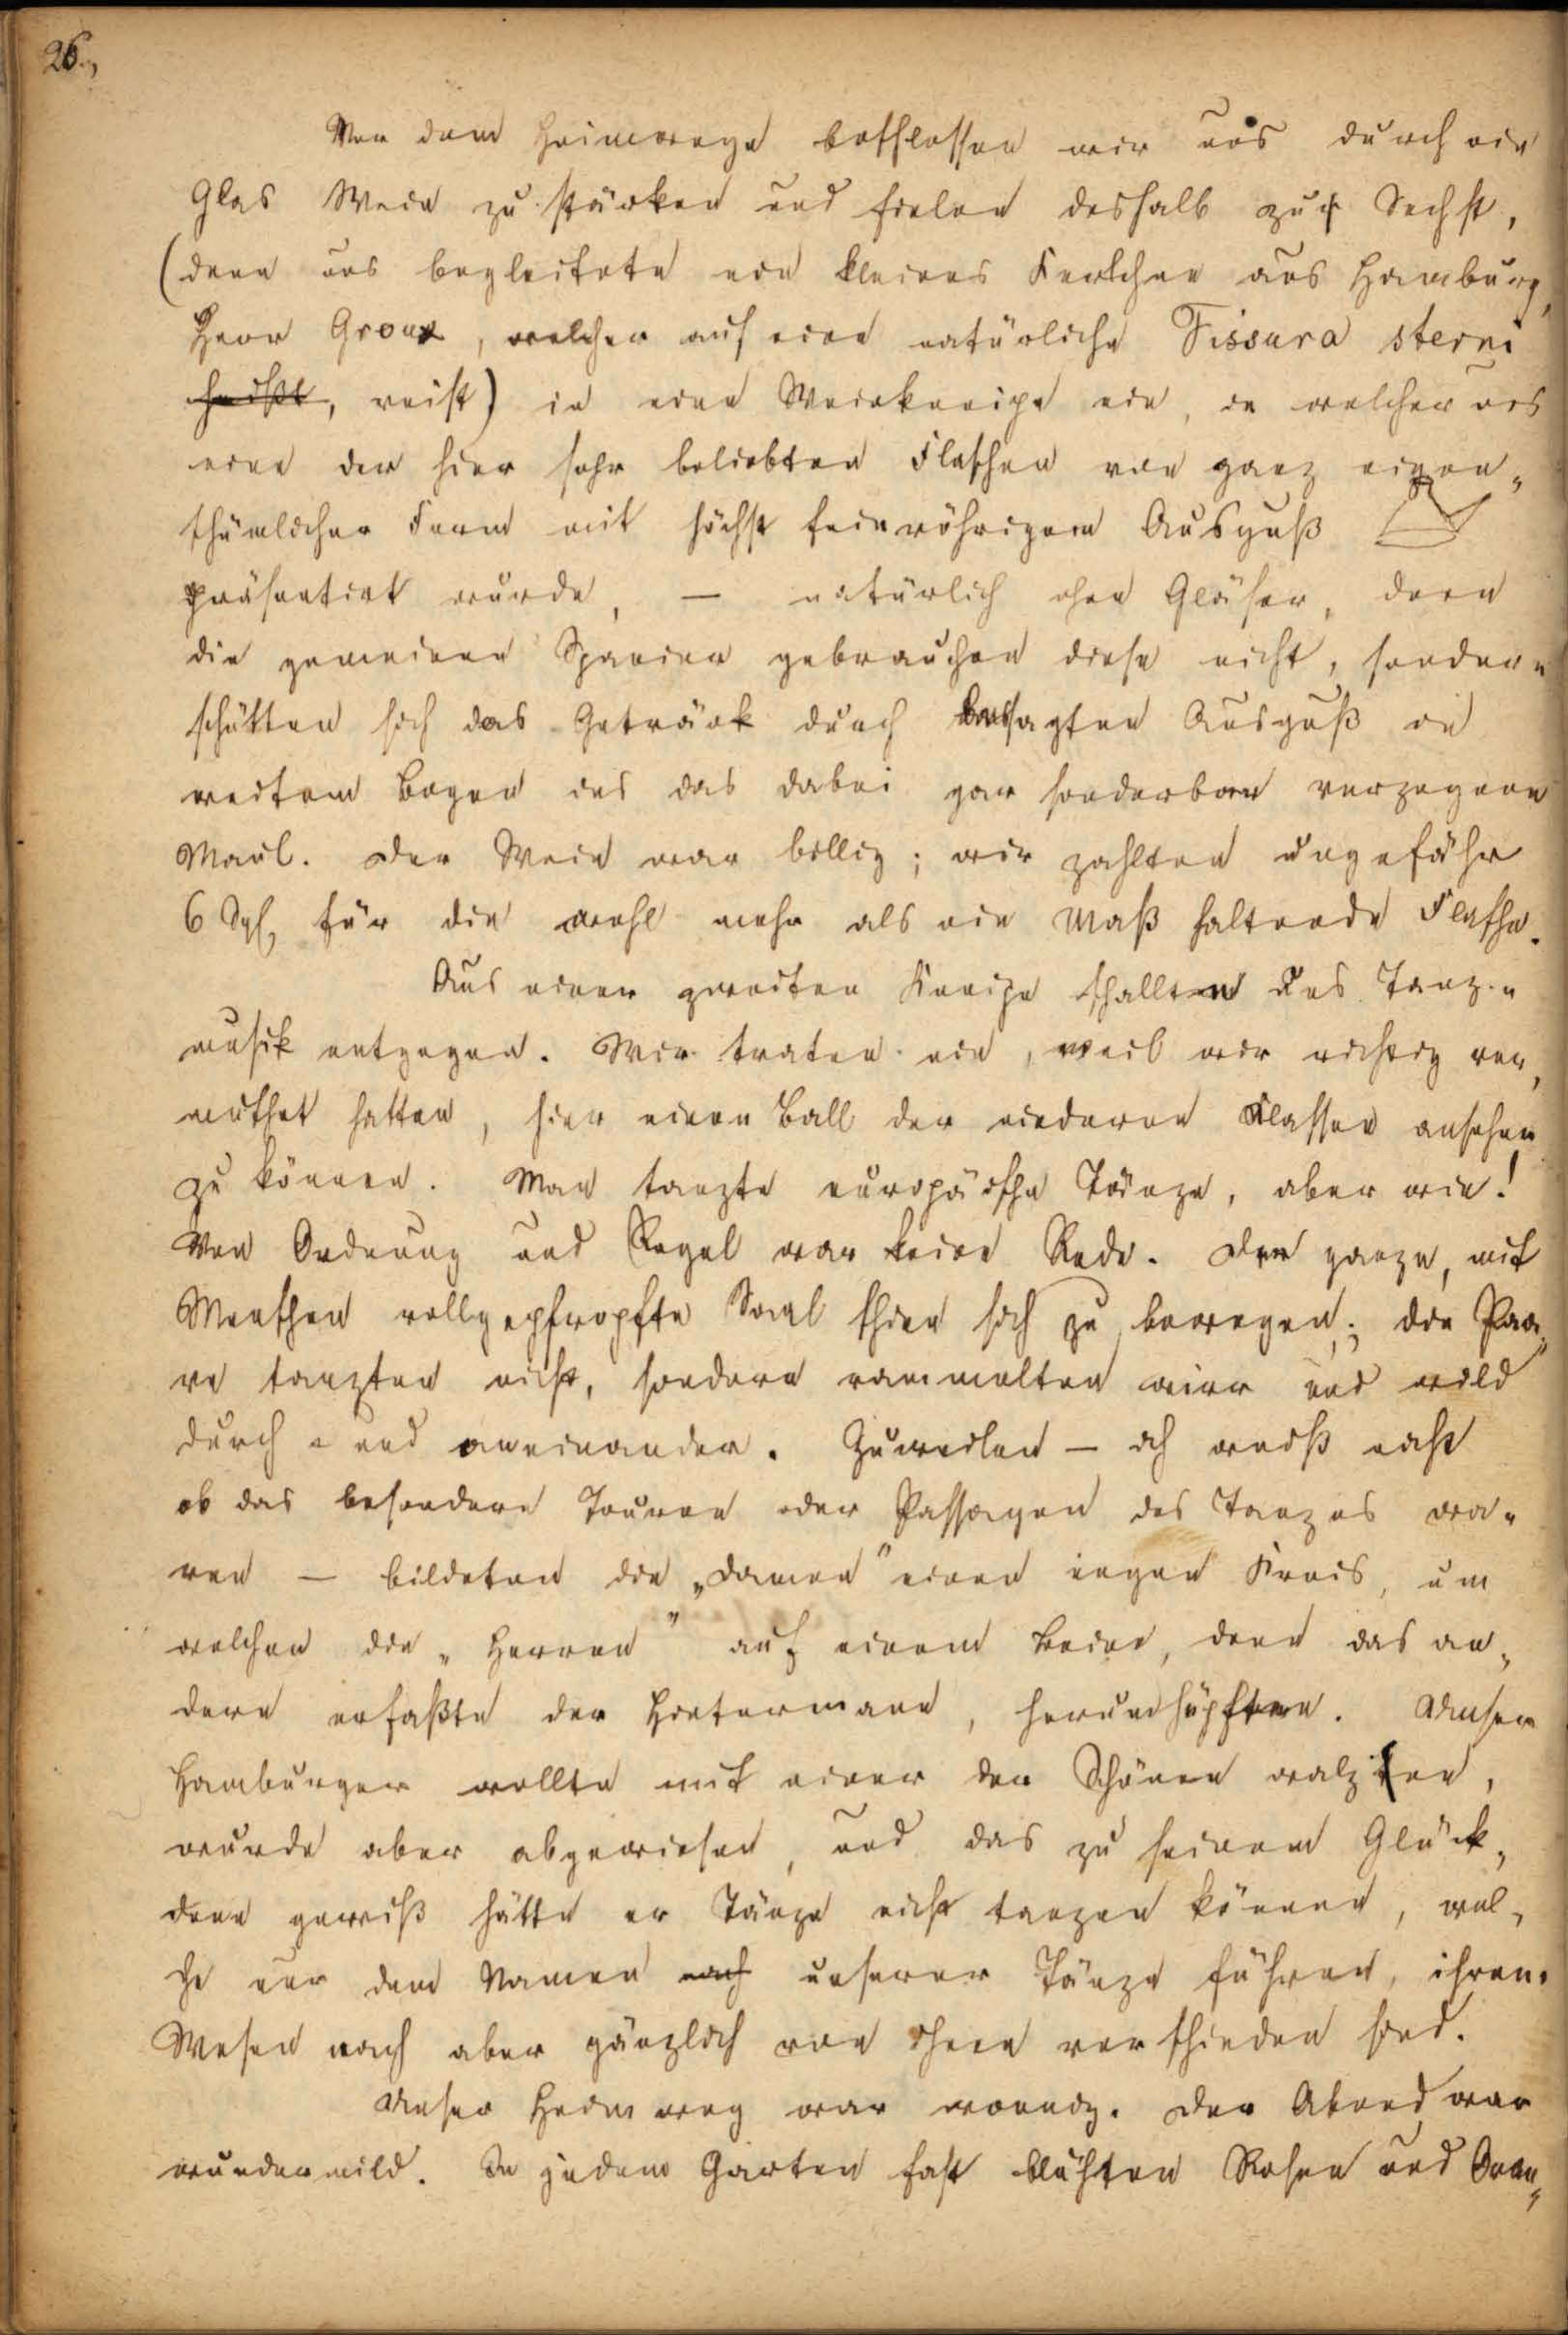 26.,
Vor dem Heimwege beschlossen wir uns durch ein
Glas Wein zu stärken und fielen deshalb zu Sechst,
(denn uns begleitete ein kleines Kerlchen aus Hamburg,
Herr Groux, welcher auf eine natürliche Fissura sterni
heißt, reist) in eine Weinkneipe ein, in welcher uns
eine der hier sehr beliebten Flaschen von ganz eigen„
thümlicher Form mit höchst feinröhrigem Ausguß
präsentirt wurde, — natürlich ohne Gläser, denn
die gemeinen Spanier gebrauchen diese nicht, sondern
schütten sich das Getränk durch besagten Ausguß in
weitem Bogen in das dabei gar sonderbar verzogene
Maul. Der Wein war billig; wir zahlten ungefähr
6 Sgl, für die wohl mehr als ein Maß haltende Flasche.
Aus einer zweiten Kneipe schallte uns Tanz„
musik entgegen. Wir traten ein, weil wir richtig ver„
muthet hatten, hier einen Ball der niederen Klassen ansehen
zu können. Man tanzte europäische Tänze, aber wie!
Von Ordnung und Regel war keine Rede. Der ganze, mit
Menschen vollgepfropfte Saal schien sich zu bewegen; die Paa„
re tanzten nicht, sondern rammelten wirr und wild
durch „ und aneinander. Zuweilen — ich weiß nicht
ob das besondere Touren oder Passagen des Tanzes wa„
ren — bildeten die „Damen" einen engen Kreis, um
welchen die „Herren" auf einem Beine, denn das an„
dere erfaßte der Hintermann, herumhüpften. Unser
Hamburger wollte mit einer der Schönen walzen,
wurde aber abgewiesen, und das zu seinem Glück,
denn gewiß hätte er Tänze nicht tanzen können, wel„
che nur den Namen nach unserer Tänze führen, ihrem
Wesen nach aber gänzlich von ihnen verschieden sind.
Unser Heimweg war wonnig. Der Abend war
wundermild. In jedem Garten fast blühten Rosen und Oran„